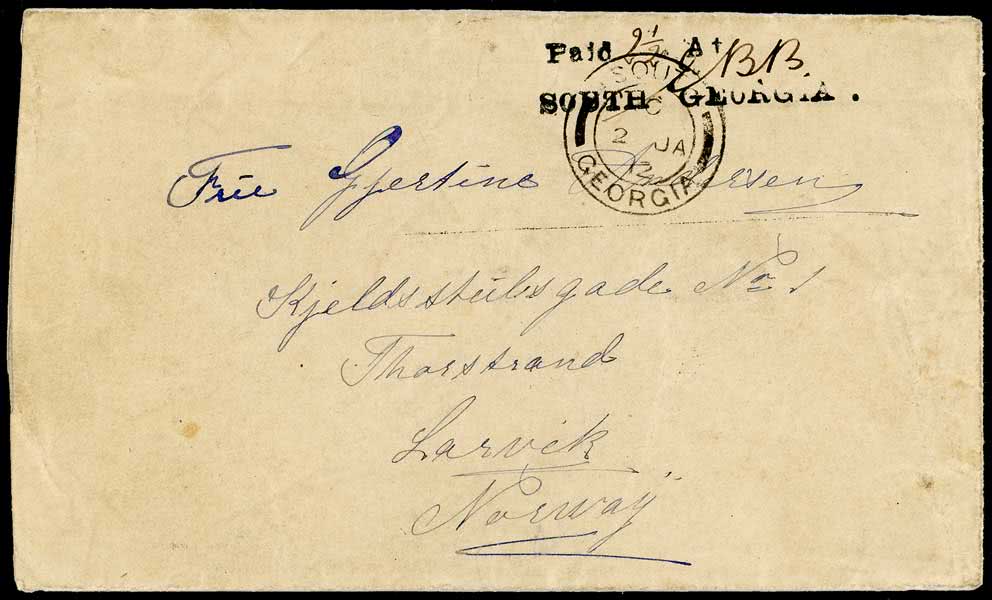 Paid 2½ At BB.
SOUTH GEORGIA.
SOUTH
C
2 JA
12
GEORGIA
Frue Gjertine
Kjeldsstubsgade No 1
Thorstrand
Larvik
Norway